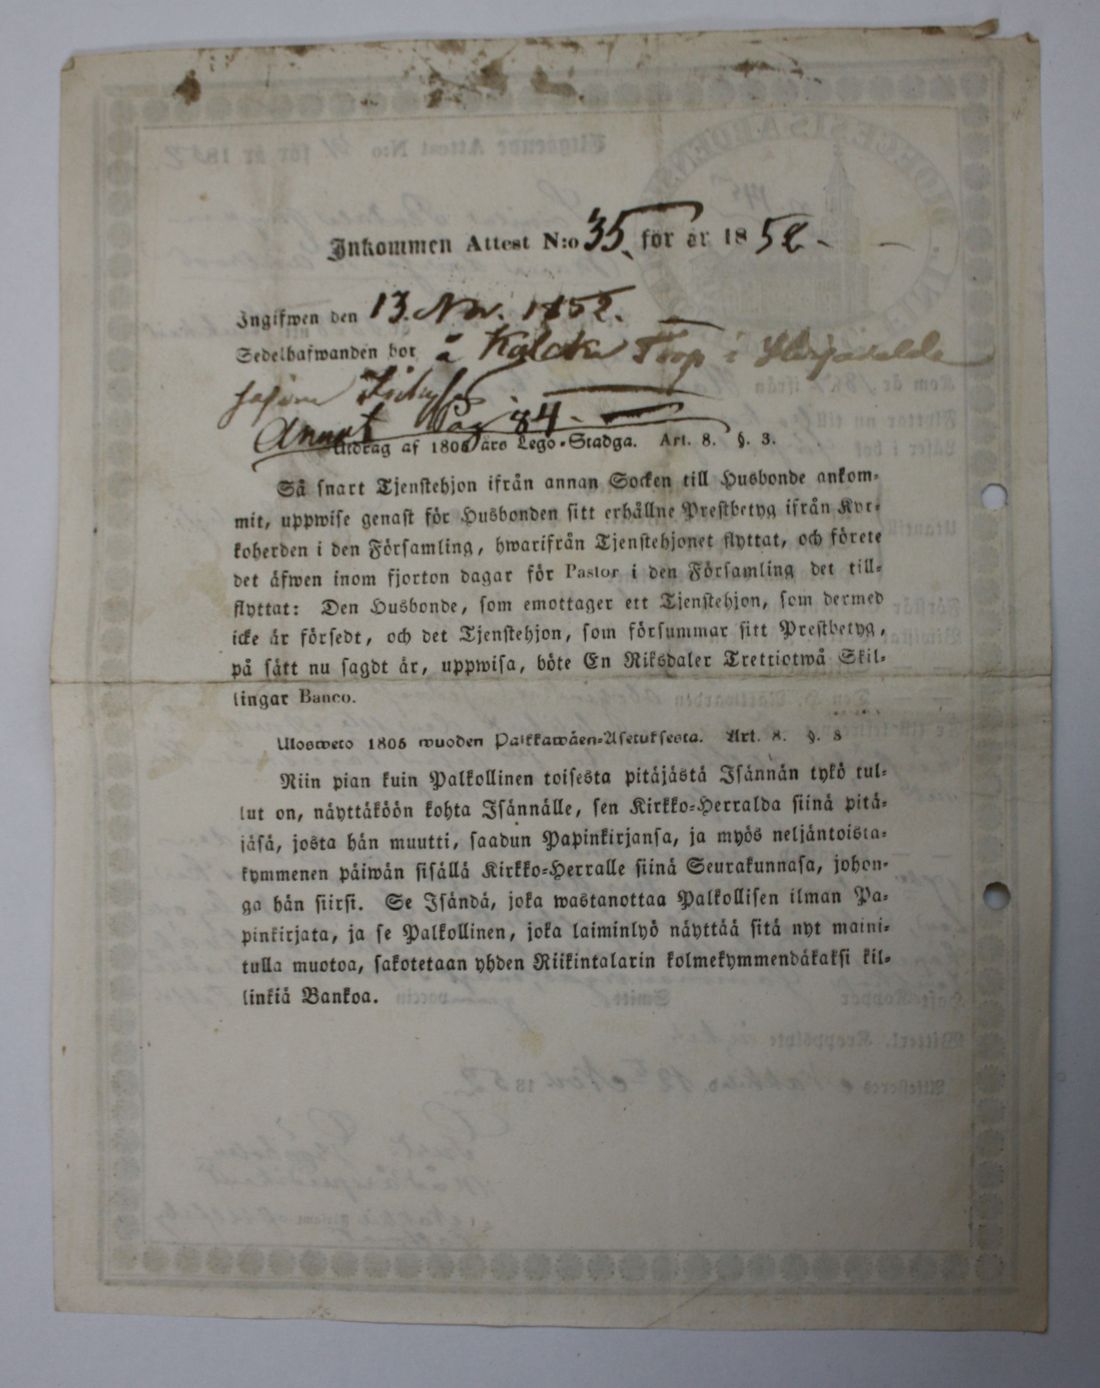 Inkommen Attest N:o 35. för år 1852.
Ingifwen den 13. Nov. 1852.
Sedelhafwanden bor å Torp i
Annot Pag 84.
Utdrag af 1805 års Lego-Stadga. Art. 8. §. 3.
Så snart Tjenstehjon ifrån annan Socken till Husbonde ankom-
mit, uppwise genast för Husbonden sitt erhållne Prestbetyg ifrån Kyr-
koherden i den Församling, hwarifrån Tjenstehjonet flyttat, och förete
det äfwen inom fjorton dagar för Pastor i den Församling det till-
flyttat: Den Husbonde, som emottager ett Tjenstehjon, som dermed
icke är försedt, och det Tjenstehjon, som försummar sitt Prestbetyg,
på sätt nu sagdt är, uppwisa, böte En Riksdaler Trettiotwå Skil-
lingar Banco.
Ulosweto 1805 wuoden Palkkawäen-Asetuksesta. Art. 8. §. 3
Niin pian kuin Palkollinen toisesta pitäjästä Isännän tykö tul-
lut on, näyttäköön kohta Isännälle, sen Kirkko-Herralda siinä pitä-
jäsä, josta hän muutti, saadun Papinkirjansa, ja myös neljäntoista-
kymmenen päiwän sisällä Kirkko-Herralle siinä Seurakunnasa, johon-
ga hän siirsi. Se Isändä, joka wastanottaa Palkollisen ilman Pa-
pinkirjata, ja se Palkollinen, joka laiminlyö näyttää sitä nyt maini-
tulla muotoa, sakotetaan yhden Riikintalarin kolmekymmendäkaksi kil-
linkiä Bankoa.